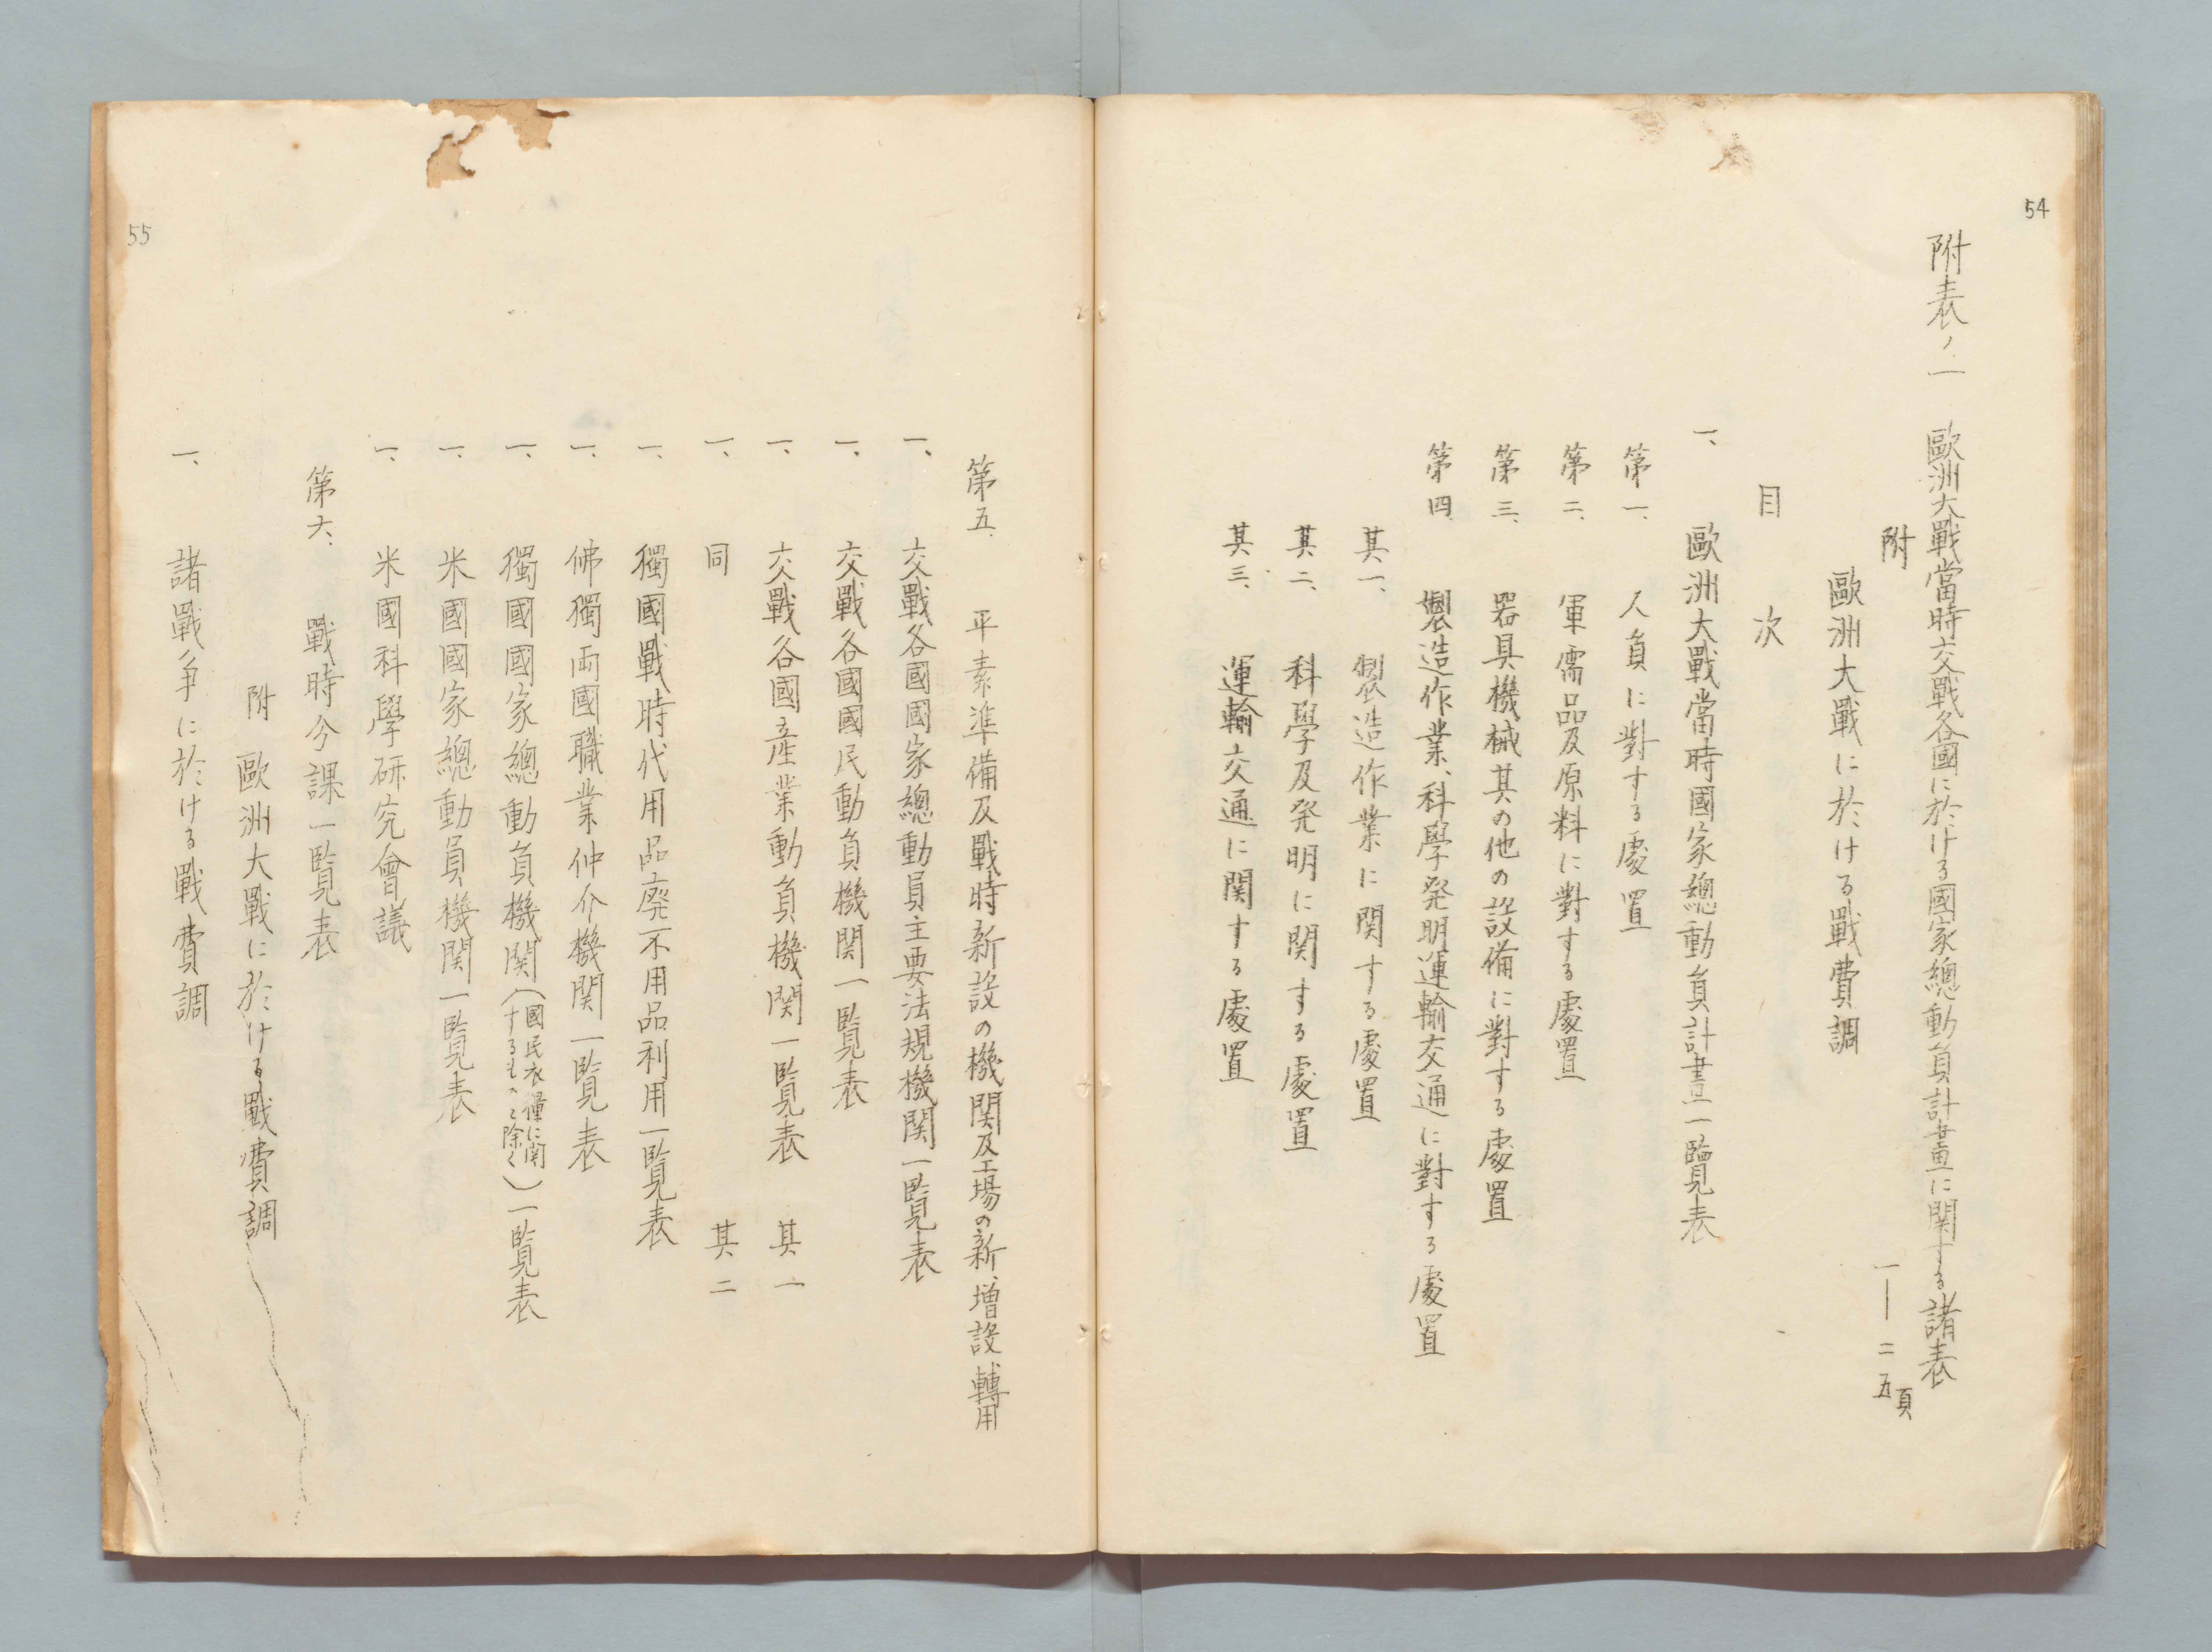 54
附表ノ一　歐洲大戰當時交戰各國に於ける國家總動員計畫に関する諸表
附　一―二五頁
歐洲大戰に於ける戰費調
目　次
一、歐洲大戰當時國家總動員計畫一覽表
第一、人員に對する處置
第二、軍需品及原料に對する處置
第三、器具機械其の他の設備に對する處置
第四、製造作業、科學発明運輸交通に對する處置
其一、製造作業に関する處置
其二、科學及発明に関する處置
其三、運輸交通に関する處置
第五、平素準備及戰時新設の機関及工場の新、増設、轉用
一、交戰各國國家總動員主要法規機関一覧表
一、交戰各國國民動員機関一覧表
一、交戰各國産業動員機関一覧表　其一
一、同　其二
一、獨國戰時代用品廃不用品利用一覧表
一、佛獨両國職業仲介機関一覧表
一、獨國國家總動員機関（國民衣糧に関するものを除く）一覧表
一、米國國家總動員機関一覧表
一、米國科學研究會議
第六、戰時分課一覧表
附　歐洲大戰に於ける戰費調
一、諸戰争に於ける戰費調
55